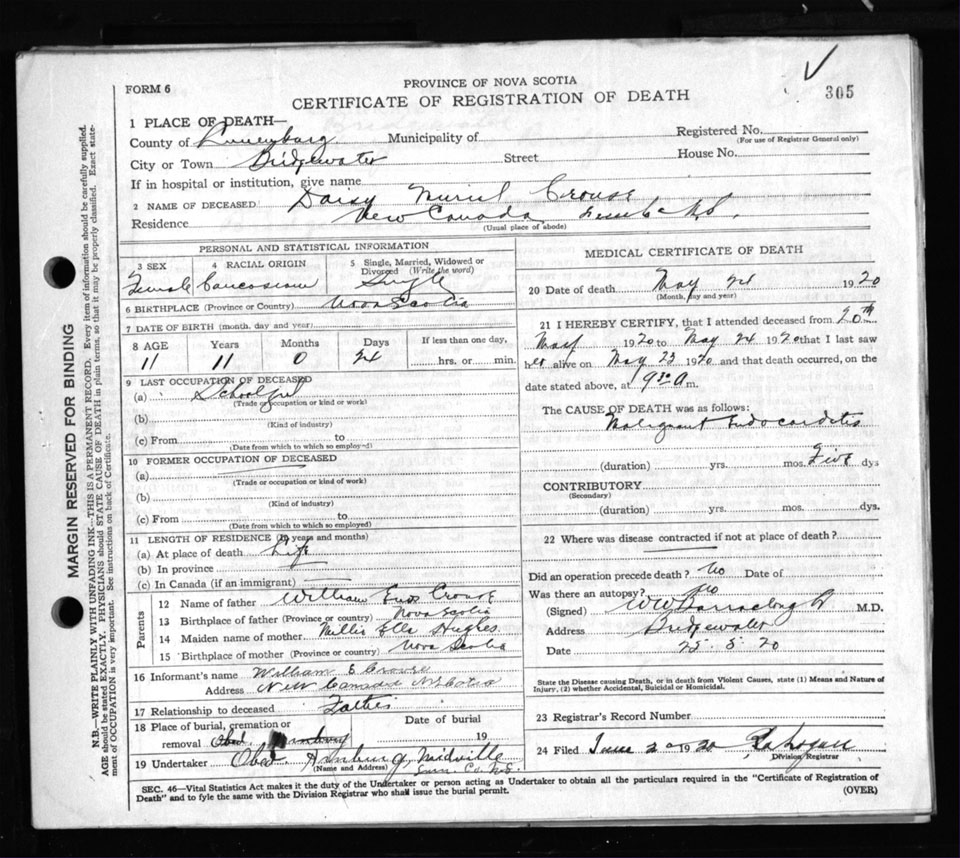 FORM 6
PROVINCE OF NOVA SCOTIA
CERTIFICATE OF REGISTRATION OF DEATH
305
1 PLACE OF DEATH—
County of Lunenburg Municipality of Registered No.
(For use of Registrar General only)
City or Town Bridgewater Street House No.
If in hospital or institution, give name
2 NAME OF DECEASED Daisy Muriel Crouse
Residence New Canada
(Usual place of abode)
PERSONAL AND STATISTICAL INFORMATION
3 SEX
Female
4 RACIAL ORIGIN
Caucosian
5 Single, Married, Widowed or Divorced (Write the word)
Single
6 BIRTHPLACE (Province or Country) Nova Scotia
7 DATE OF BIRTH (month, day and year)
8 AGE Years Months Days If less than one day,
11 11 0 24 hrs. or min.
9 LAST OCCUPATION OF DECEASED
(a) Schoolgirl
(Trade or occupation or kind or work)
(b)
(Kind of industry)
(c) From to
(Date from which to which so employed)
10 FORMER OCCUPATION OF DECEASED
(a)
(Trade or occupation or kind or work)
(b)
(Kind of industry)
(c) From to
(Date from which to which so employed)
11 LENGTH OF RESIDENCE (in years and months)
(a) At place of death Life
(b) In province
(c) In Canada (if an immigrant)
Parents
12 Name of father William Enos Crouse
13 Birthplace of father (Province or country) Nova Scotia
14 Maiden name of mother Millie Ella Hughes
15 Birthplace of mother (Province or country) Nova Scotia
16 Informant's name William E Crouse
Address New Canada N Scotia
17 Relationship to deceased Father
18 Place of burial, cremation or Date of burial
removal Obed. 19
19 Undertaker Obed. Midville
(Name and Address) Lun. Co. N.S.
MEDICAL CERTIFICATE OF DEATH
20 Date of death May 24 1920
(Month, day and year)
21 I HEREBY CERTIFY, that I attended deceased from 20th
May 1920 to May 24 1920 that I last saw
her alive on May 23 1920 and that death occurred, on the
date stated above, at 9 30 A m.
The CAUSE OF DEATH was as follows:
Malignant Endocarditis
(duration) yrs. mos. Five dys
CONTRIBUTORY
(Secondary)
(duration) yrs. mos. dys.
22 Where was disease contracted if not at place of death?
Did an operation precede death? No Date of
Was there an autopsy? No
(Signed) M.D.
Address Bridgewater
Date 25.5.20
State the Disease causing Death, or in death from Violent Causes, state (1) Means and Nature of
Injury, (2) whether Accidental, Suicidal or Homicidal.
23 Registrar's Record Number
24 Filed June 1920
Division Registrar
SEC. 46—Vital Statistics Act makes it the duty of the Undertaker or person acting as Undertaker to obtain all the particulars required in the "Certificate of Registration of
Death" and to fyle the same with the Division Registrar who shall issue the burial permit. (OVER)
MARGIN RESERVED FOR BINDING
N.B.—WRITE PLAINLY WITH UNFADING INK—THIS IS A PERMANENT RECORD. Every item of information should be carefully supplied.
AGE should be stated EXACTLY. PHYSICIANS should STATE CAUSE OF DEATH in plain terms, so that it may be properly classified. Exact state-
ment of OCCUPATION is very important. See instructions on back of Certificate.